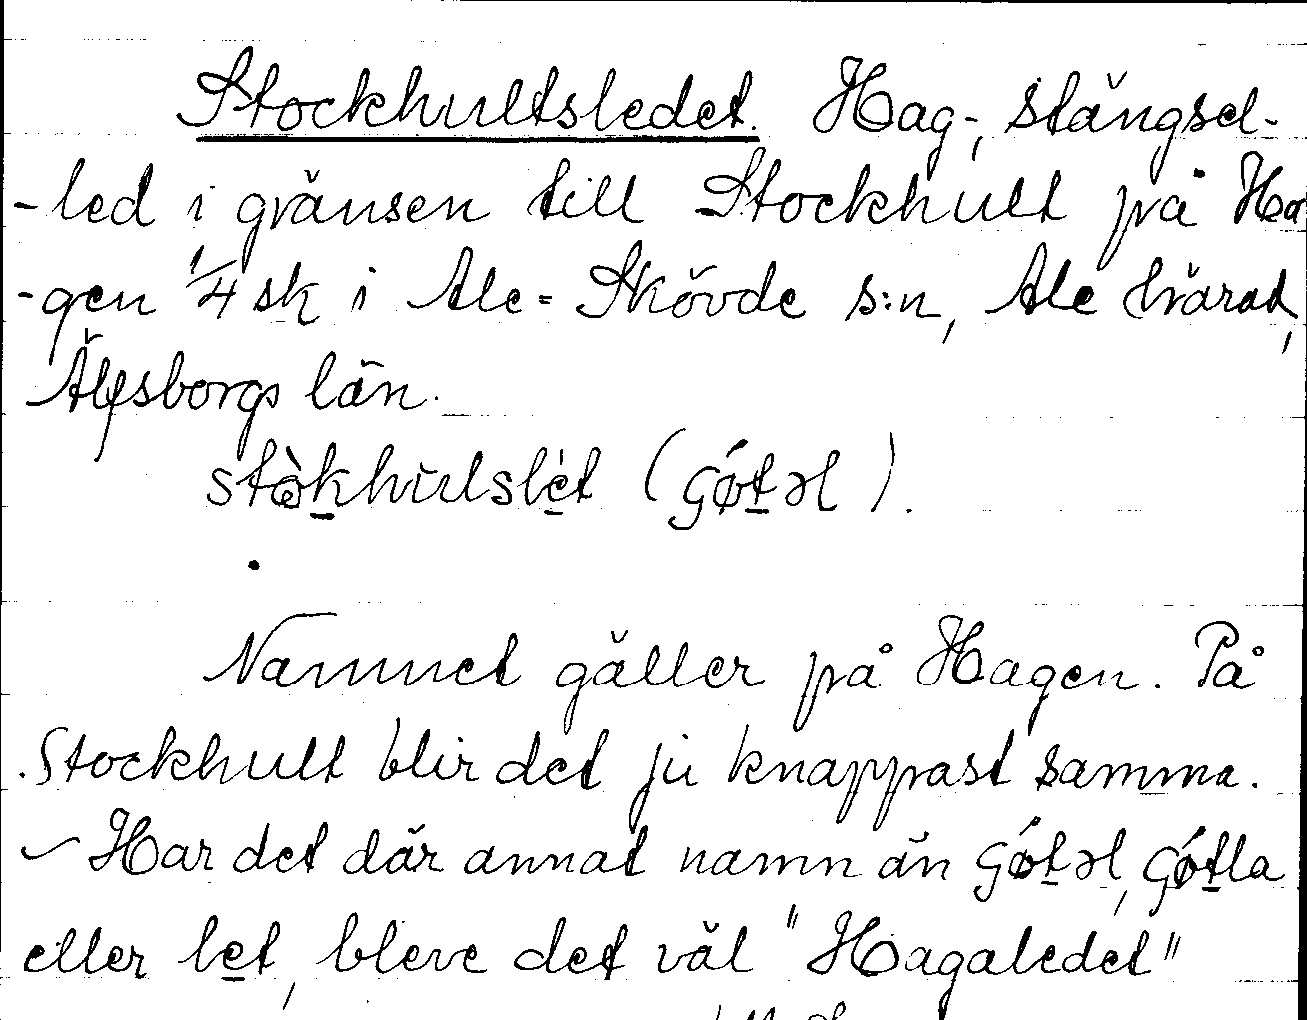 Stockhultsledet. Hag-, stängsel-
-led i gränsen till Stockhult på Ha
-gen 1/4 sk i Ale-Skövde s:n, Ale härad,
Älfsborgs län.
stòkhultslèt (gǿtəl).
Namnet gäller på Hagen. På
Stockhult blir det ju knappast samma.
– Har det där annat namn än gǿtəl, gǿtla
eller let, bleve det väl "Hagaledet"